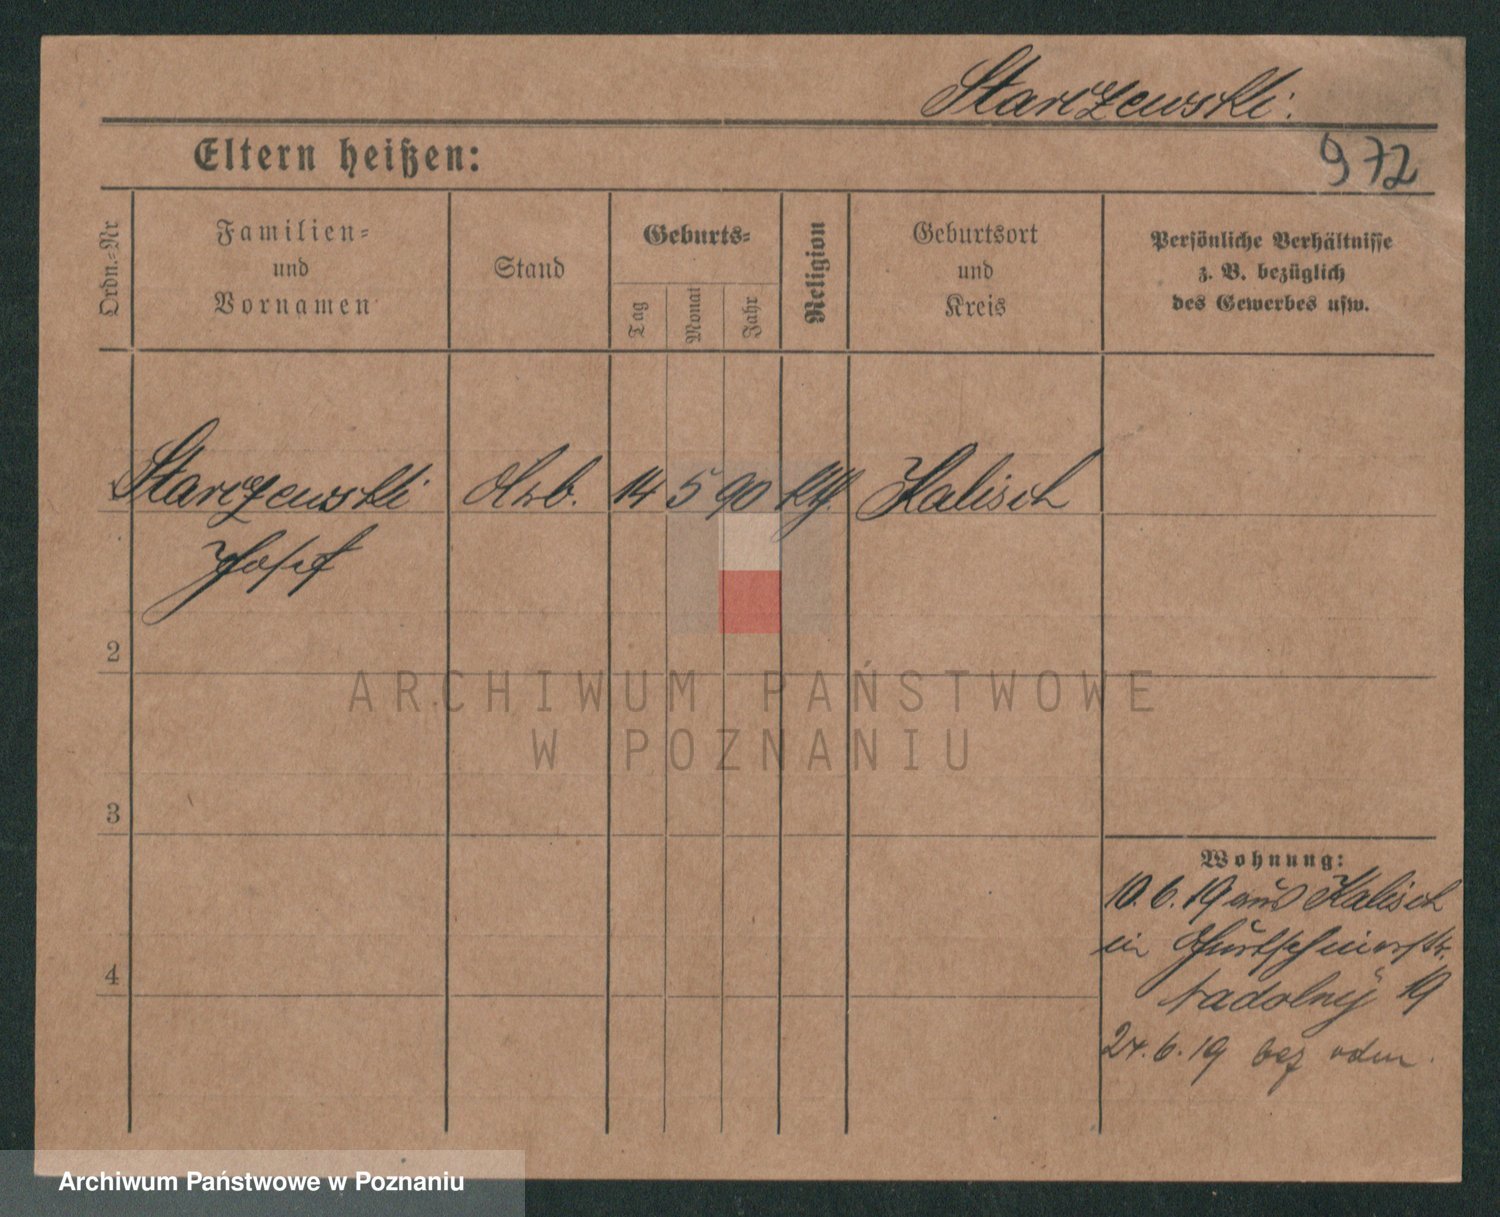 Starczewski.
Eltern heißen:
972
Ordn.-Nr
Familien-
und
Vornamen
Stand
Geburts-
Tag
Monat
Jahr
Religion
Geburtsort
und
Kreis
Persönliche Verhältnisse
z. B. bezüglich
des Gewerbes usw.
Starczewski Arb. 14 5 90 kth. Kalisch
Josef
2
3
4
Wohnung:
10.6.19 aus Kalisch
in
Nadolny 19
24.6.19 bez odm.
ARCHIWUM PAŃSTWOWE
W POZNANIU
Archiwum Państwowe w Poznaniu